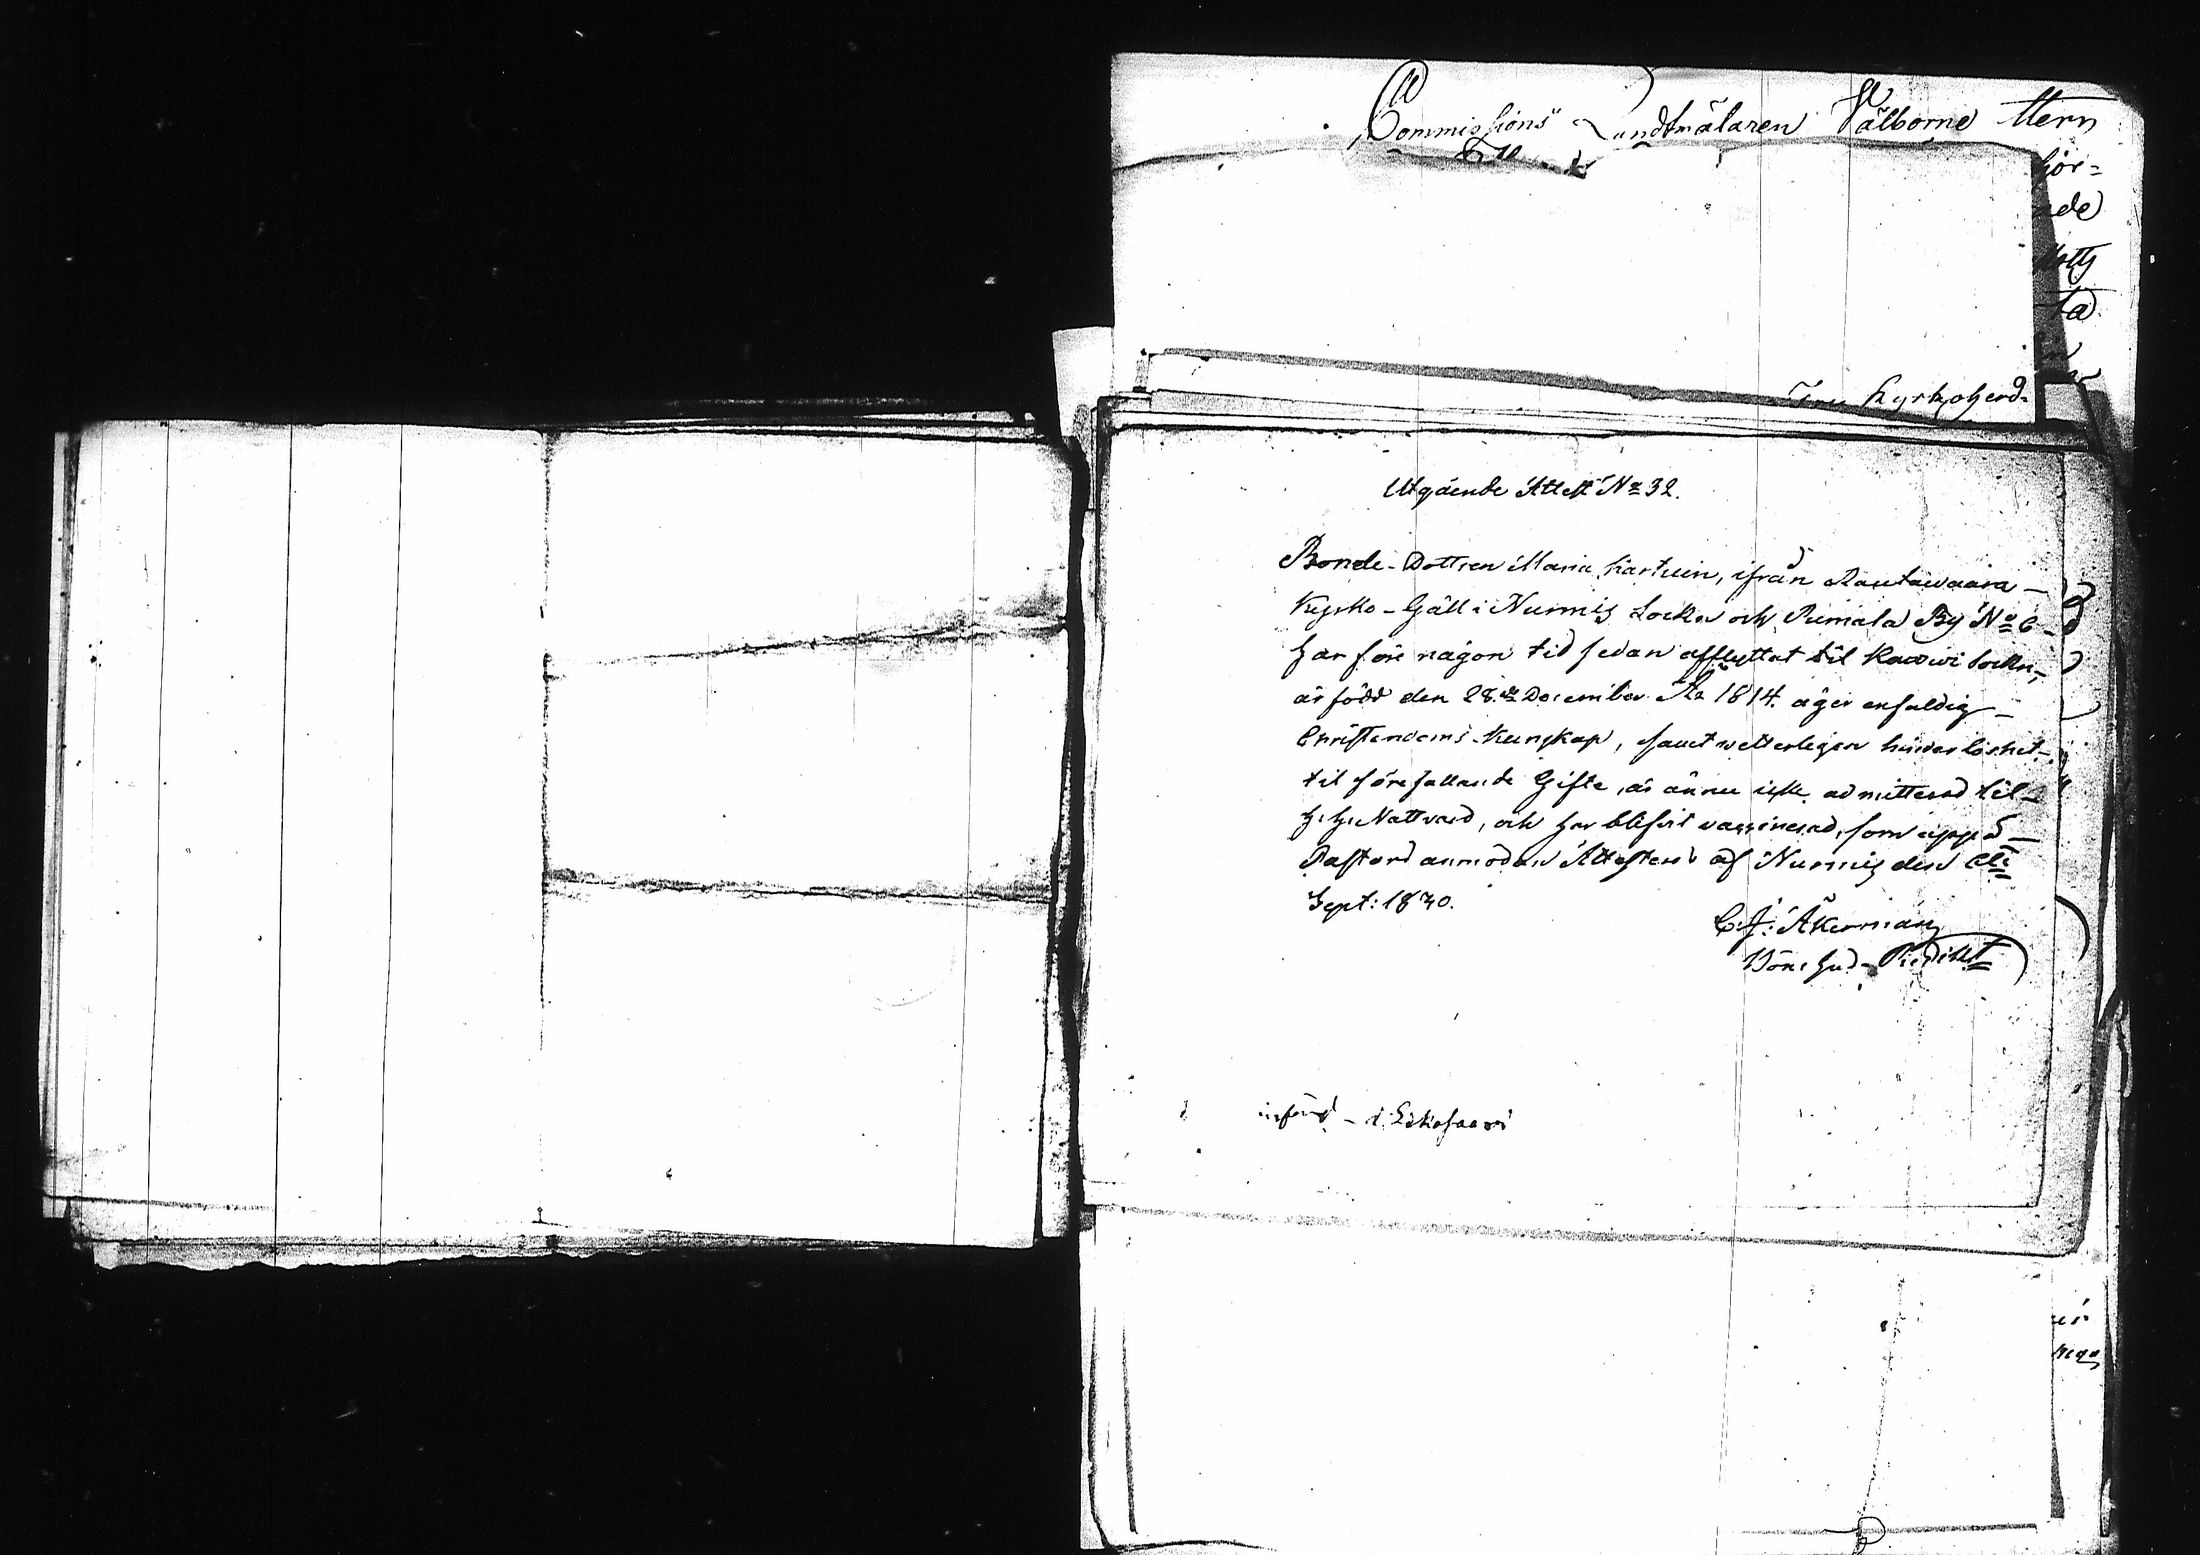 Commissions Landtmätaren Välborne Herr
för-
nde
ta
Kyrkoherd-
Utgående Attest No 32.
Bonde-Dottren Maria Kärtuin, ifrån Rautawaara
Kyrko-Gäll i Nurmis Sockn och Pumala By No 6
har före någon tid sedan afflyttat til Kaawi Sockn,
är född den 28.de December År 1814. äger enfaldig
Christendoms-Kunskap, samt wetterlegen hinderlöshet
til förefallande Gifte, är ännu icke admitterad til
H. H. Nattvard, och har blifvit vaccinerad, som uppå
Pastors anmodan Attesteras af Nurmis den
Sept: 1830.
C. J. Åkerman
införd - i Siikasaari